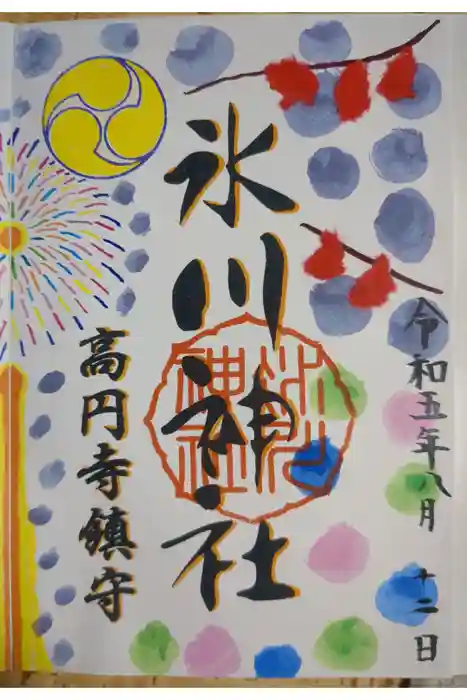 令和五年八月 十二日
氷川神社
高円寺鎮守